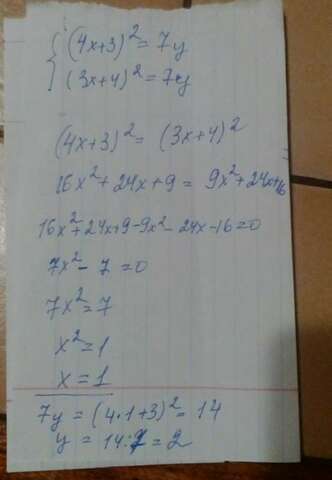 (4x+3)² = 7y
(3x+4)² = 7y
(4x+3)² = (3x+4)²
16x² + 24x + 9 = 9x² + 24x + 16
16x² + 24x + 9 - 9x² - 24x - 16 = 0
7x² - 7 = 0
7x² = 7
x² = 1
x = 1
7y = (4·1+3)² = 14
y = 14:7 = 2